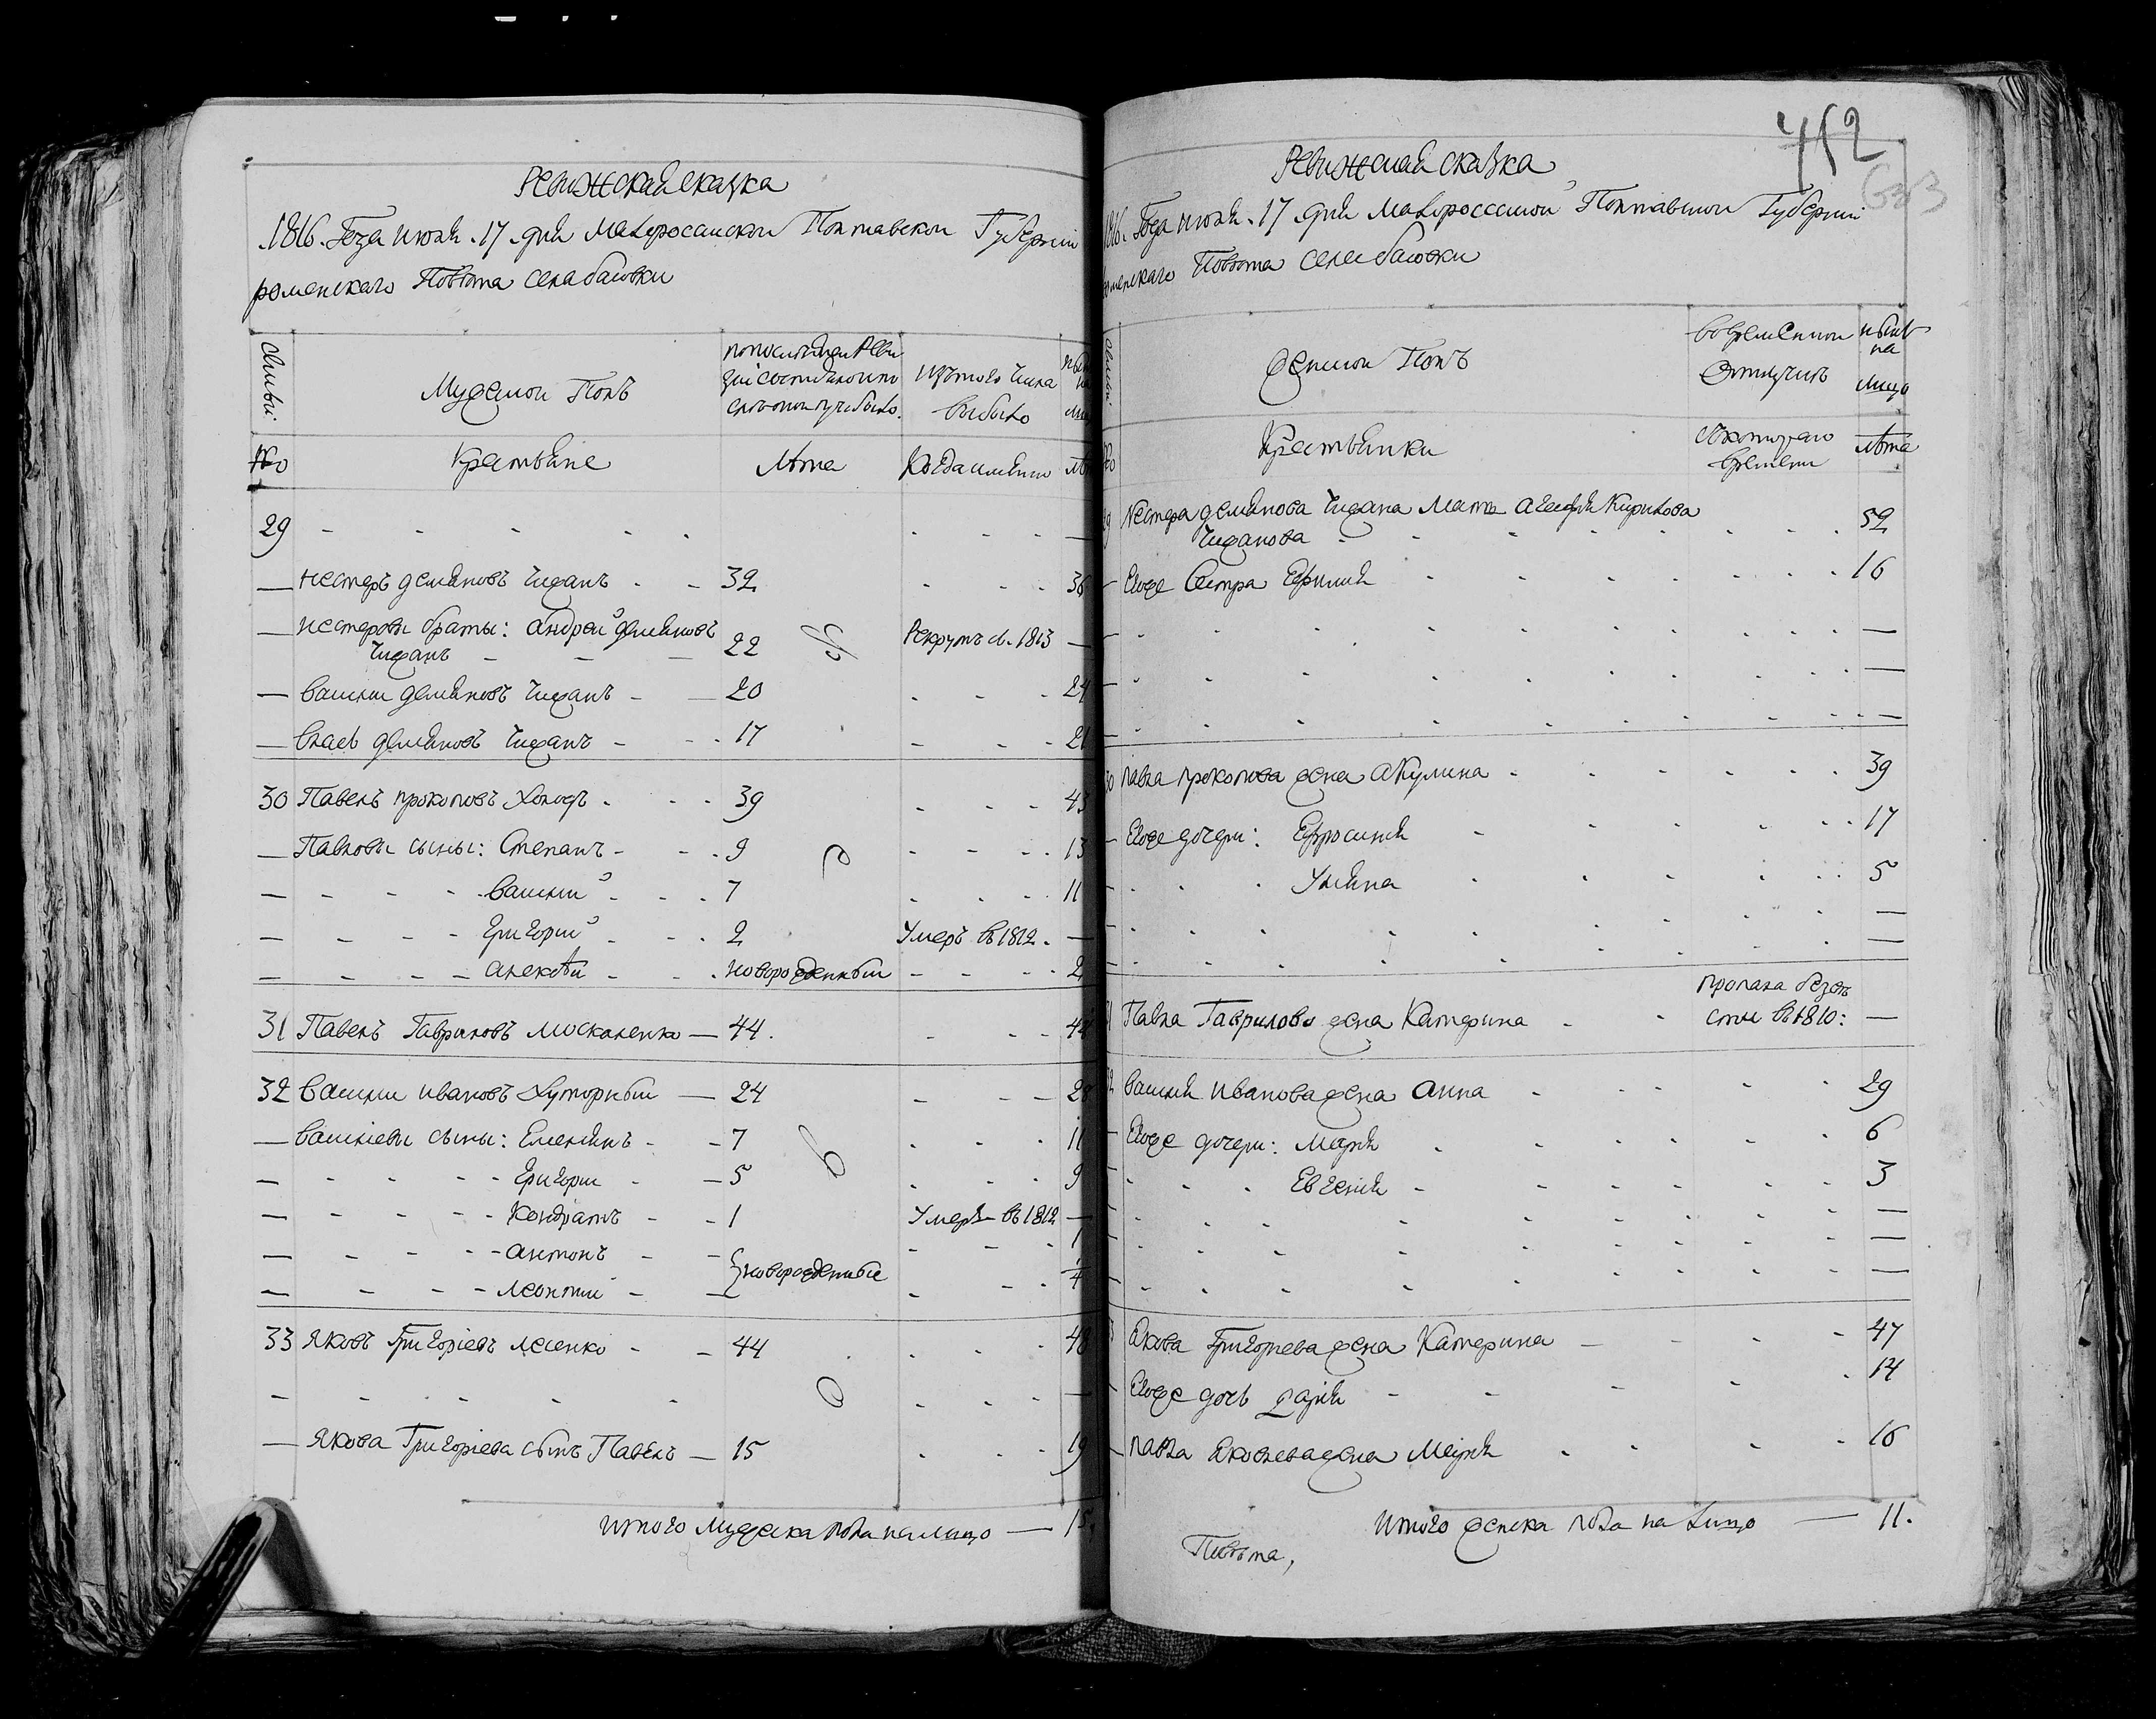 Ревижская сказка
1816. Года июня. 17 дня Малоросийской Полтавской Губернии
роменскаго Повѣта села басовки
Семьи.
Мужеской Полъ
по последней Ревизіи состояло и после оной прибыло.
изътого числа выбыло
№
Крестьяне
Лѣта
Когда имянно
29
— нестеръ демяновъ чижанъ - - 32 - - - 36
— нестеровы браты: андрей демяновъ
чижанъ - - — 22 Рекрутъ в. 1813 —
— васили демяновъ чижанъ - — 20 - - - 24
— власъ демяновъ чижанъ - - - 17 - - - 21
30 Павелъ прокоповъ Холодъ - - - 39 - - - 43
— Павловы сыны: Степанъ - - - 9 - - - 13
— - - - - василий - - - 7 - - - 11
— - - - - григорий - - - 2 Умеръ въ 1812. —
— - - - - алексѣй - - - новорожденный - - - 2
31 Павелъ Гавриловъ москаленко — 44. - - - 48
32 василии ивановъ Хуторный — 24 - - — 28
— василіевы сыны: Емелянъ - - 7 - - - 11
— - - - - григори - — 5 - - - 9
— - - - - Кондратъ - - 1 Умеръ - въ 1812 —
— - - - - антонъ - - } новорожденные - - - 1
— - - - - леонтий - — - - - 4
33 Яковъ Григоріевъ лесенко - - 44 - - - 48
— Якова Григоріева сынъ Павелъ — 15 - - - 19
итого мужеска пола налицо — 15.
452
633
Ревижская сказка
1816. Года июня. 17 дня Малоросийской Полтавской Губернии
роменскаго Повѣта села басовки
Семьи.
Женской Полъ
во временной отлучкѣ
нынѣ на лицо
№
Крестьянки
съ котораго времени
лѣта
29 Нестера демянова чижана мать агафия Кирилова
чижанова - - - 52
— Егоже Сестра Ефимия - - - 16
30 павла прокопова жена акулина - - - 39
— Егоже дочери: Ефросиния - - - 17
- - - Ульяна - - - 5
31 Павла Гаврилова жена Катерина - - пропала безвѣстно въ 1810: —
32 василия иванова жена анна - - - 29
— Егоже дочери: Мария - - - 6
- - - Евгения - - - 3
33 Якова Григорьева жена Катерина — - - - 47
— Егоже дочь дария - - - 14
— павла Яковлева жена Мария - - - 16
итого женска пола на лицо — 11.
Повѣта,